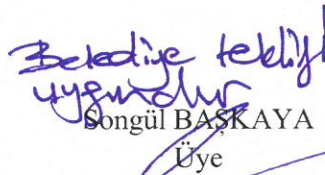 Belediye teklifi
uygundur
Songül BAŞKAYA
Üye